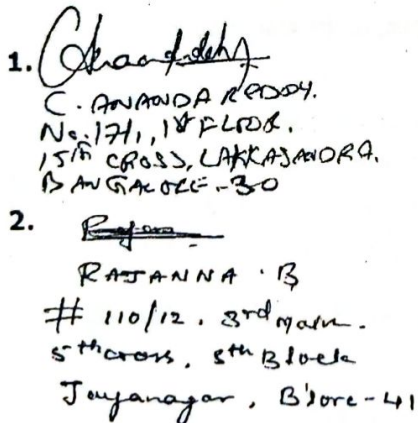 1.
C. ANANDA REDDY.
No. 171, 1st FLOOR.
15th CROSS, LAKKASANDRA.
BANGALORE-30
2.
RAJANNA . B
# 110/12. 3rd Main.
5th cross, 5th Block
Jayanagar, B'lore-41